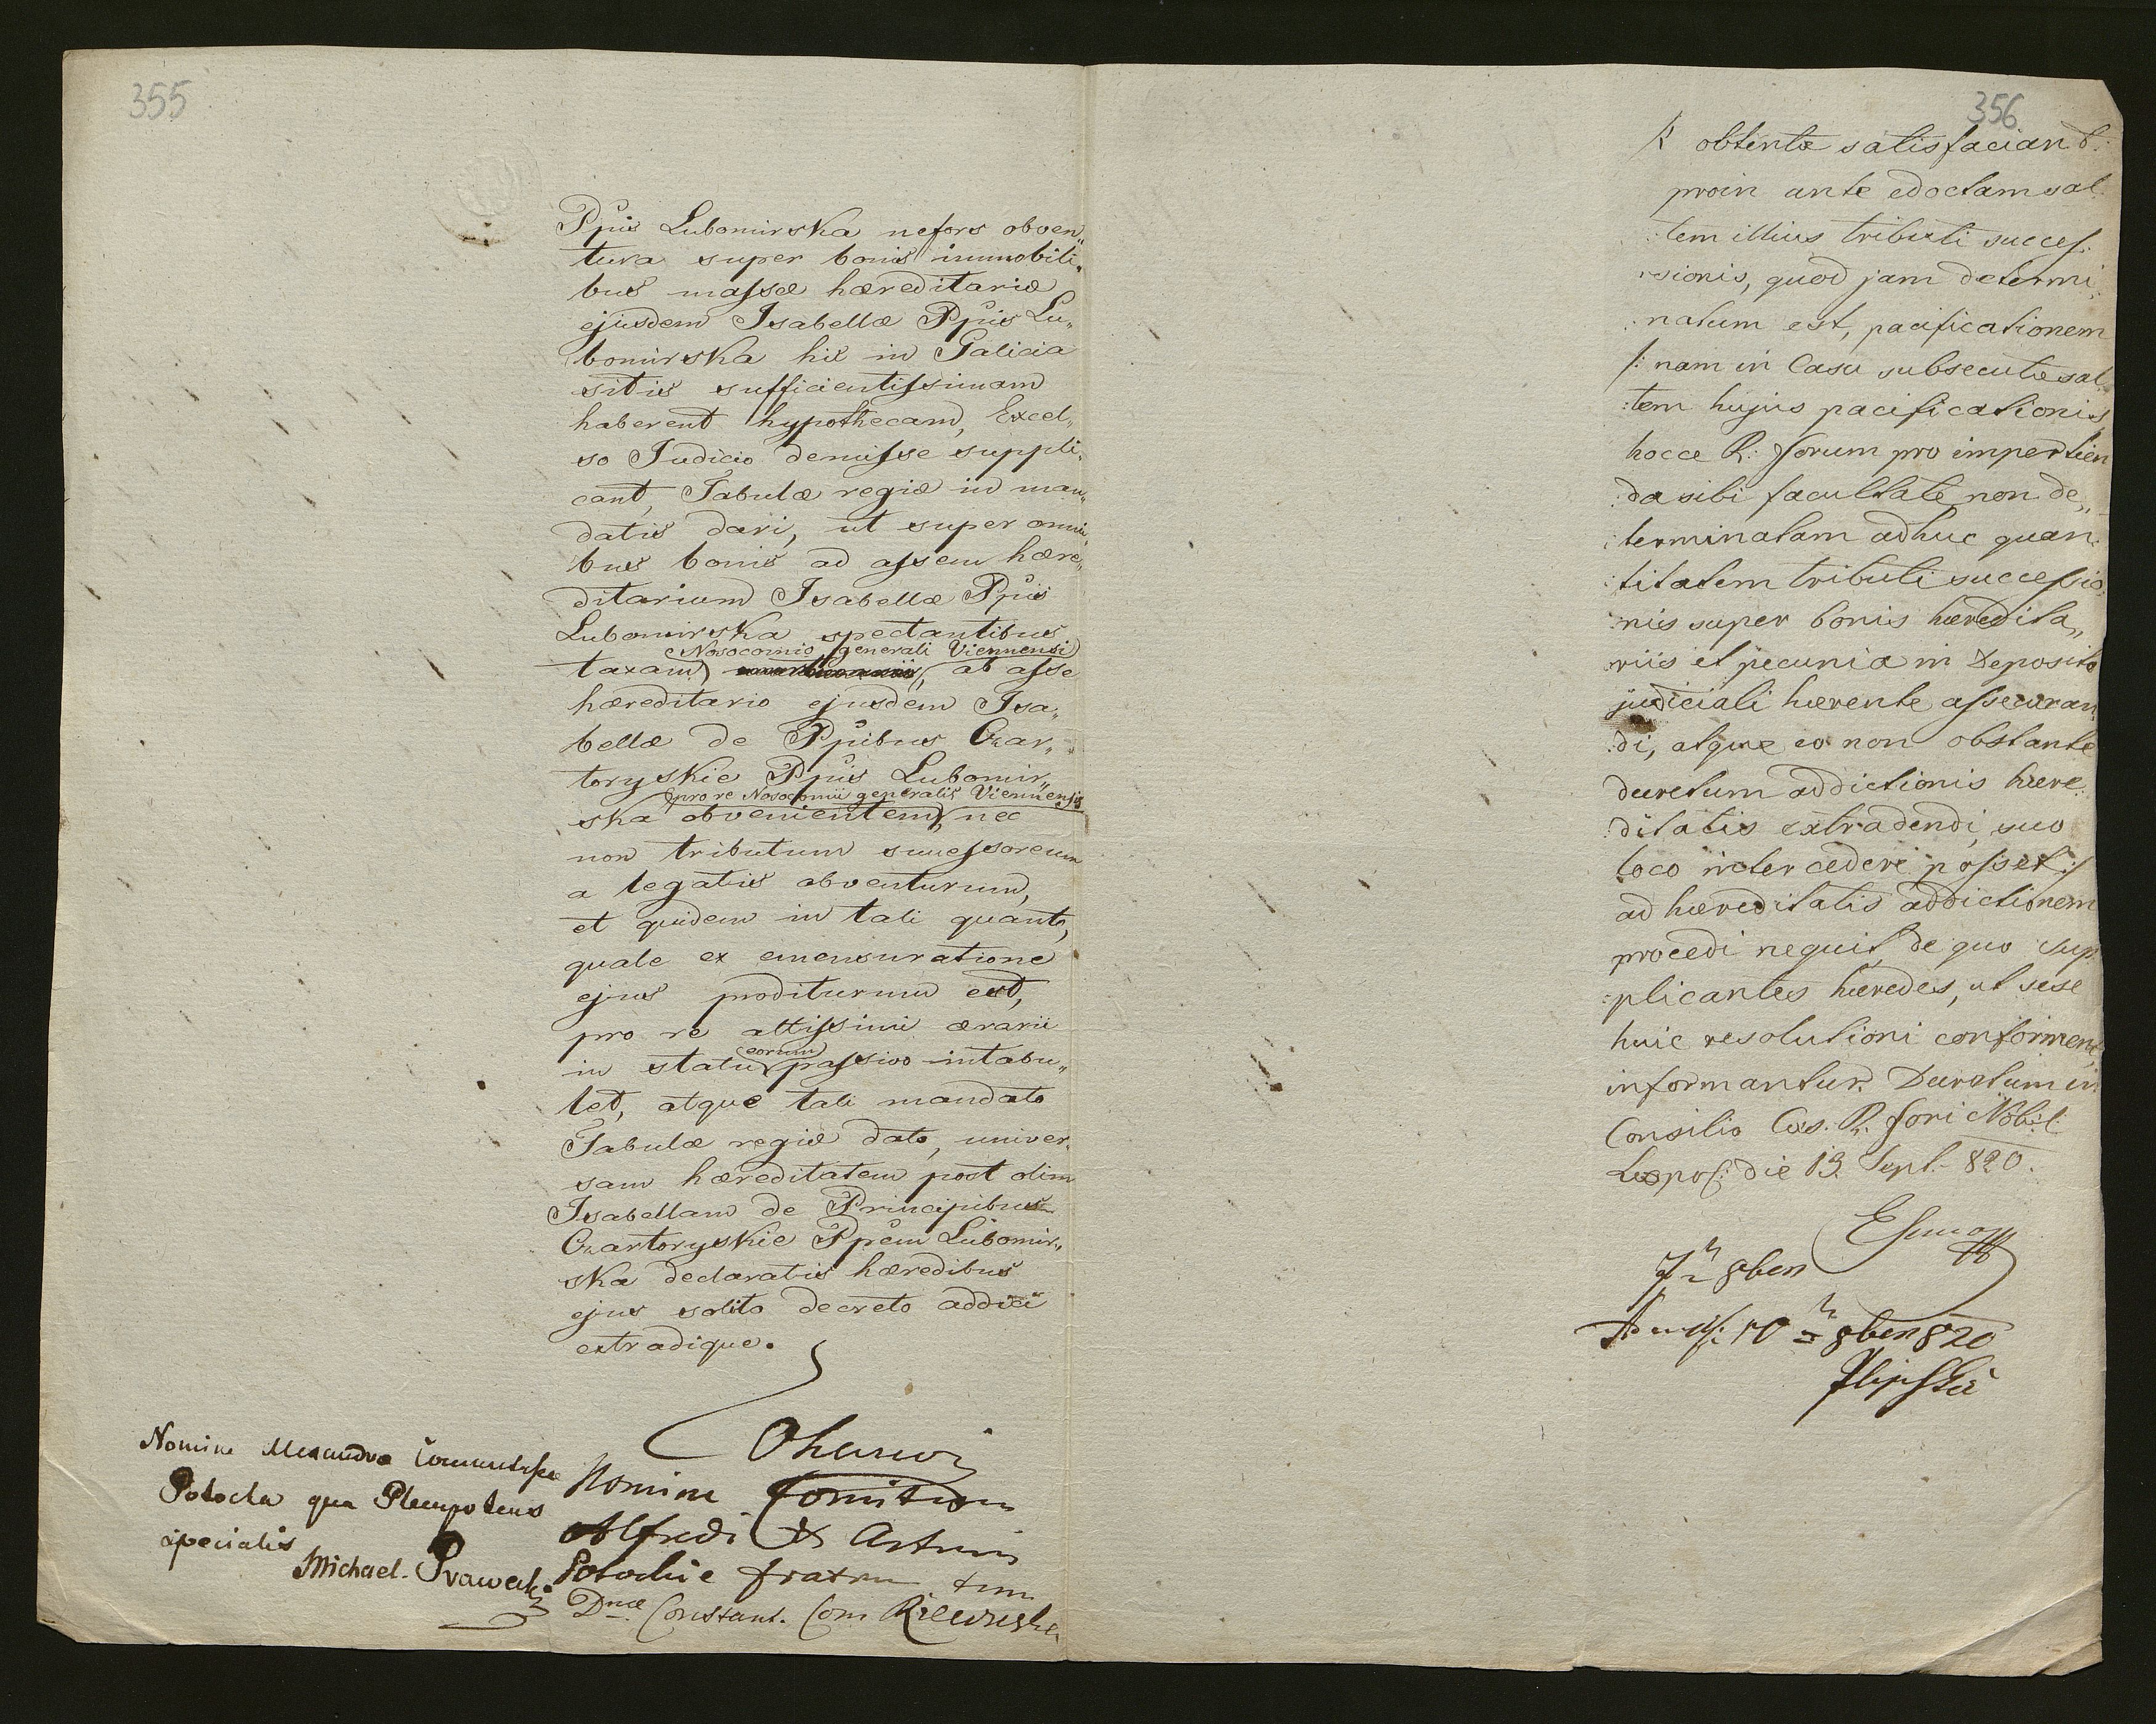 355
Ppis Lubomirska nefors obven„
tura super bonis immobili„
bus massæ hæreditariæ
ejusdem Isabellæ Ppis Lu„
bomirska hic in Galicia
sitis sufficientissimam
haberent hypothecam, Excel„
so Judicio demisse suppli„
cant, Tabulæ regiæ in man„
datis dari, ut super omni„
bus bonis ad assem hære„
ditarium Isabellæ Ppis
Lubomirska spectantibus
Nosocomio generali Viennensi
taxam, ab asse
hæreditario ejusdem Isa„
bellæ de Ppibus Czar„
toryskie Ppis Lubomir„
pro re Nosocomii generalis Viennensis
ska obvenientem, nec
non tributum successoreum
a legatis obventurum,
et quidem in tali quanto,
quale ex emensuratione
ejus proditurum est,
pro re altissimi ærarii
eorum
in statu passivo intabu„
let, atque tali mandato
Tabulæ regiæ dato, univer„
sam hæreditatem post olim
Isabellam de Principibus
Czartoryskie Ppem Lubomir„
ska declaratis hæredibus
ejus solito decreto addici
extradique.
Nomine Comitum
Alfredi & Arturi
Potockie fratrum tum
Dnæ Constant. Com Rzewuska
Nomine Alexandræ Comitissæ
Potocka qua Plenipotens
specialis
Michael
356
obtentæ satisfaciant.
proin ante edoctam sal„
tem illius tributi succes„
sionis, quod jam determi„
natum est, pacificationem
/: nam in Casu subsecutæ sal„
tem hujus pacificationis
hocce R. Forum pro impertien„
da sibi facultate non de„
terminatam adhuc quan„
titatem tributi successio„
nis super bonis hæredita„
riis et pecunia in Deposito
judiciali hærente assecuran„
di, atque eo non obstante
decretum addictionis hære„
ditatis extradendi, suo
loco intercedere posset :/
ad hæreditatis addictionem
procedi nequit, de quo sup„
plicantes hæredes, ut sese
huic resolutioni conforment,
informantur. Decretum in
Consilio Cæs. R. Fori Nobil:
Leopol: die 13. Sept. 820.
8ben
10 8ben 820